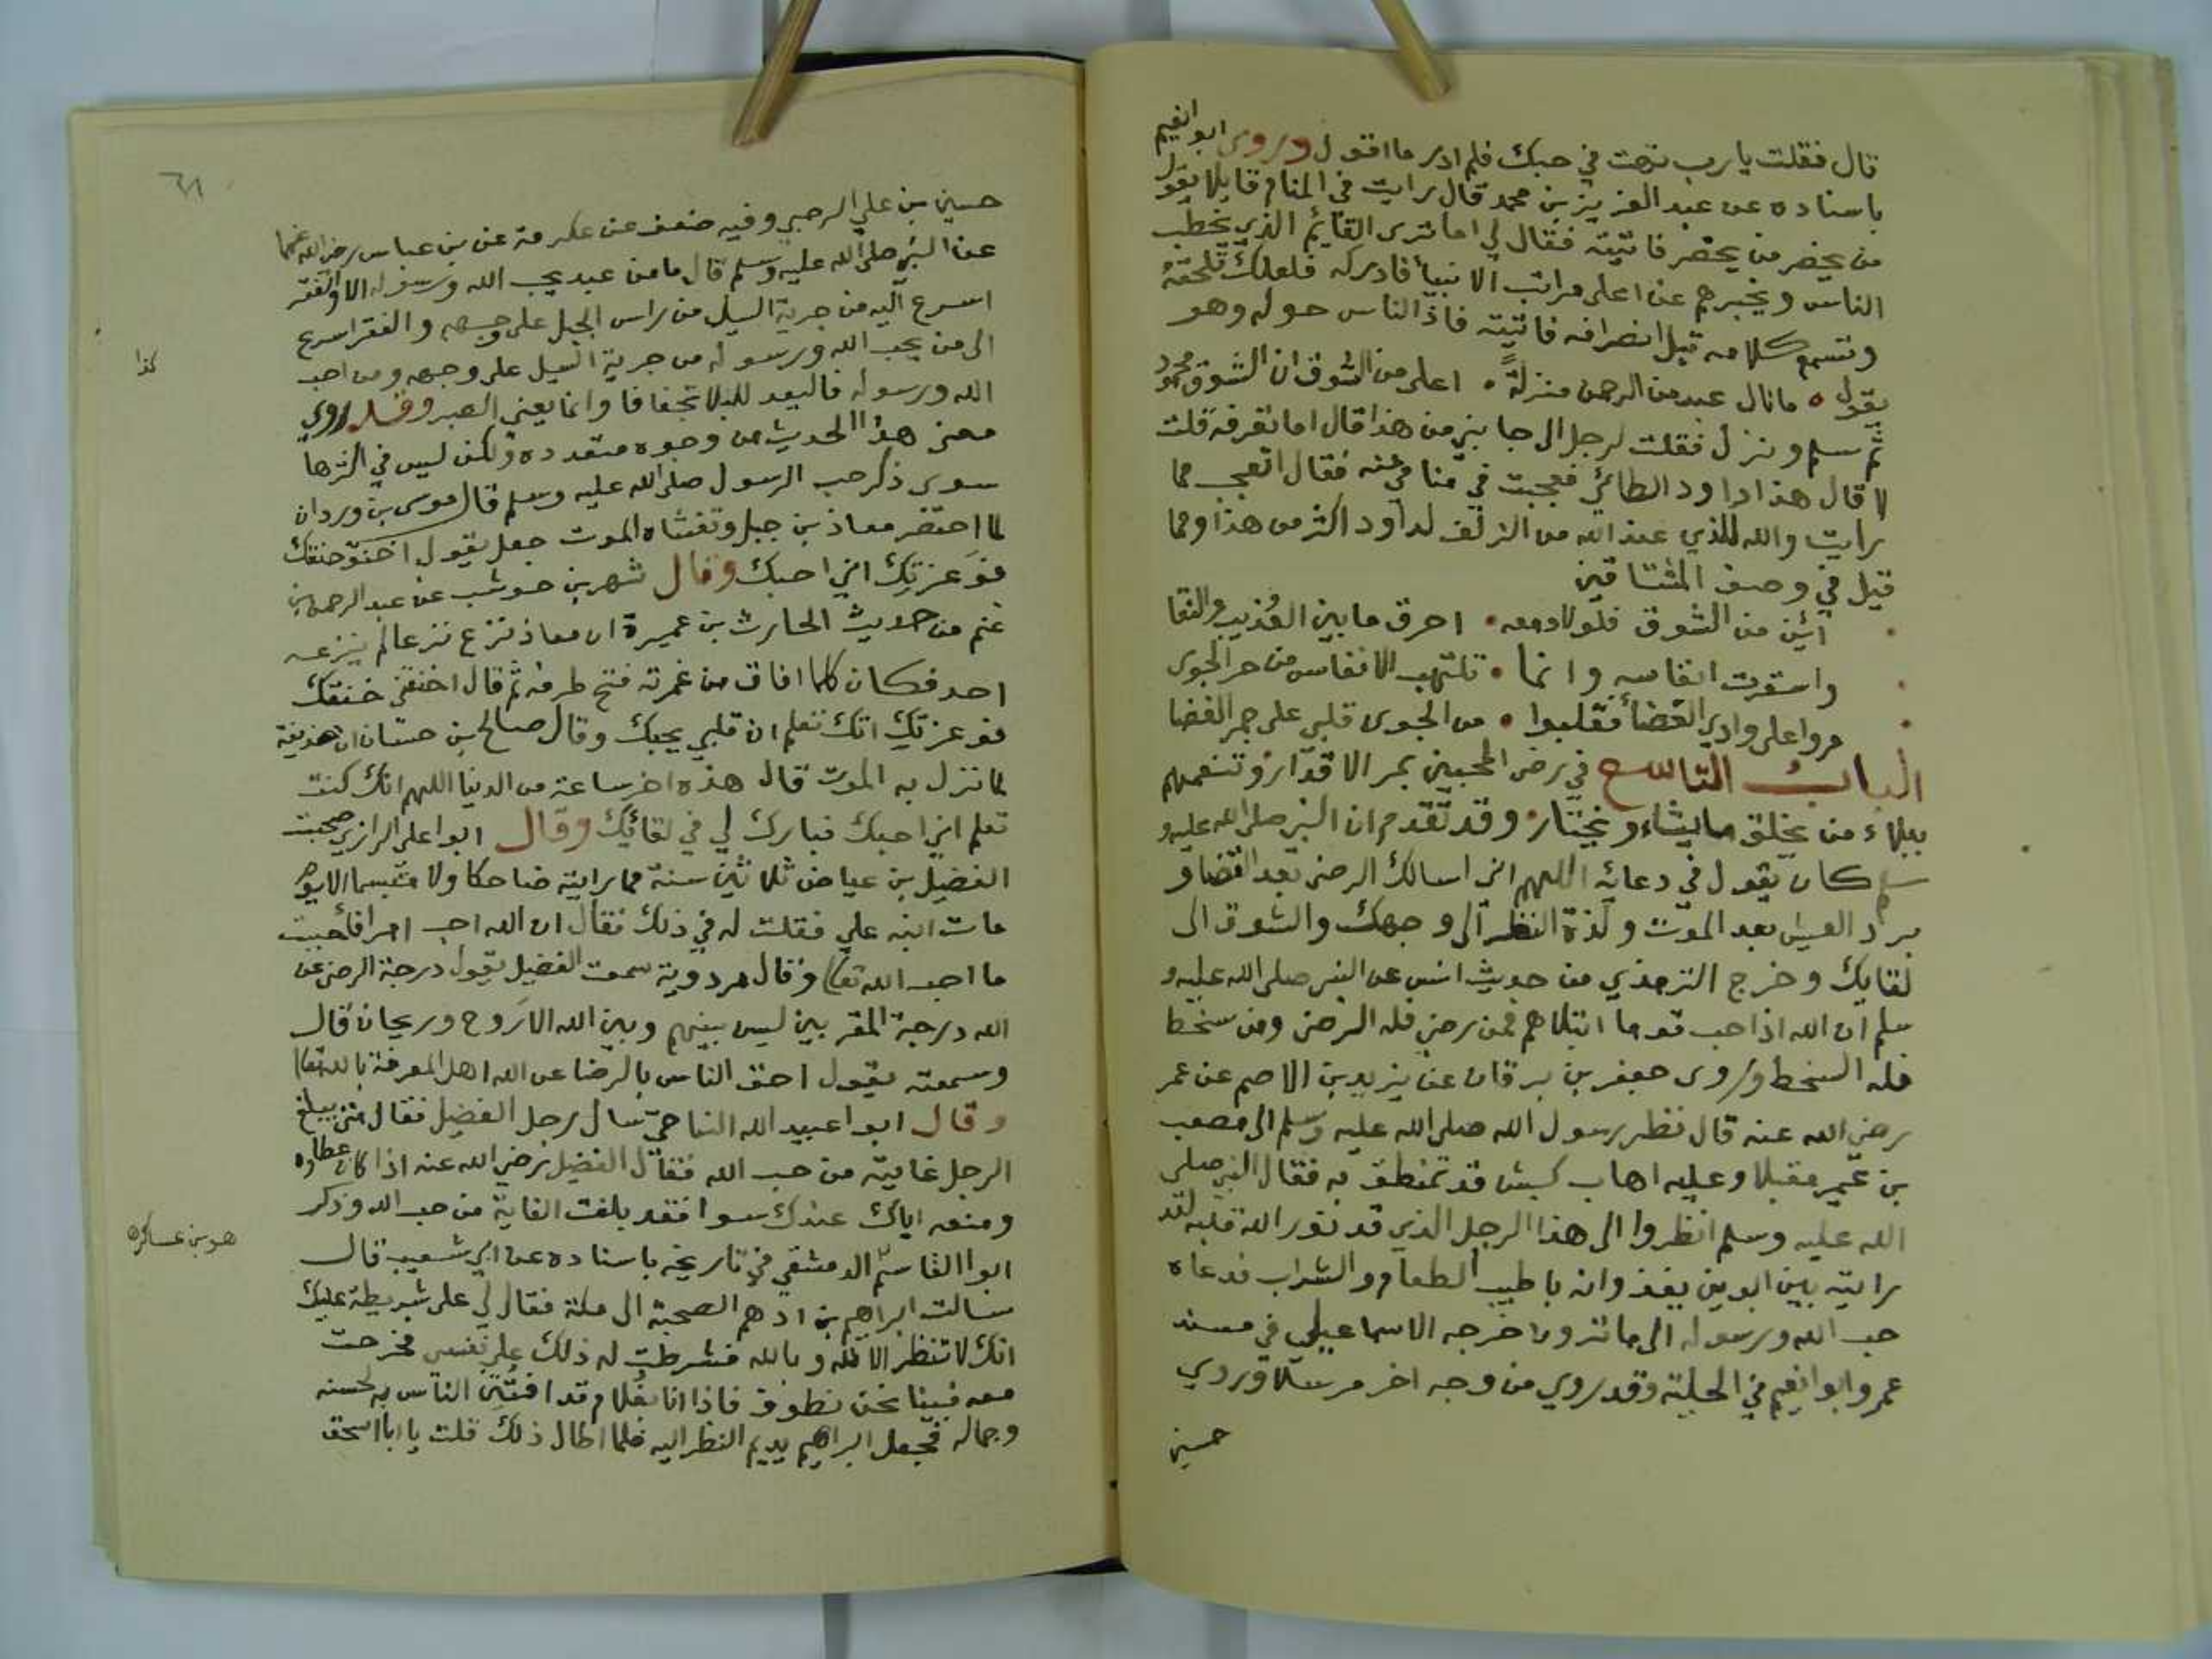 قال فقلت يا رب تهت في حبك فلم ادر ما اقول وروى ابو انعيم
باسناده عن عبد العزيز بن محمد قال رايت في المنام قايلا يقول
من يحضر من يحضر فاتيته فقال لي اما ترى القايم الذي يخطب
الناس ويخبرهم عن اعلى مراتب الانبيا فادركه فلعلك تلحقه
وتسمع كلامه قبل انصرافه فاتيته فاذ الناس حوله وهو
يقول ٥ ما نال عبد من الرحمن منزلة • اعلى من الشوق ان الشوق محمود
ثم سلم ونزل فقلت لرجل الى جانبي من هذا قال اما تعرفه قلت
لا قال هذا داود الطائي فعجبت في منامي منه فقال اتعجب مما
رايت والله للذي عند الله من الزلف لداود اكثر من هذا ومما
قيل في وصف المشتاقين
• أئن من الشوق فلولا دمعه • احرق ما بين العُذيب والنقا
• واستقرت انفاسه وانما • تلتهب الانفاس من حر الجوى
• مروا على وادي الغضا فقلبوا • من الجوى قلبي على جمر الغضا
الباب التاسع في رضى المحبين بمر الاقدار وتنعمهم
ببلاء من يخلق ما يشاء ويختار وقد تقدم ان النبي صلى الله عليه و
سلم كان يقول في دعائه اللهم اني اسالك الرضى بعد القضا و
برد العيش بعد الموت ولذة النظر الى وجهك والشوق الى
لقايك وخرج الترمذي من حديث انس عن النبي صلى الله عليه و
سلم ان الله اذا احب قوما ابتلاهم فمن رضي فله الرضى ومن سخط
فله السخط وروى جعفر بن برقان عن يزيد بن الاصم عن عمر
رضي الله عنه قال نظر رسول الله صلى الله عليه وسلم الى مصعب
بن عمير مقبلا وعليه اهاب كبش قد تمنطق به فقال النبي صلى
الله عليه وسلم انظروا الى هذا الرجل الذي قد نور الله قلبه لقد
رايته بين ابوين يغذوانه باطيب الطعام والشراب فدعاه
حب الله ورسوله الى ما ترون اخرجه الاسماعيلي في مسند
عمر وابو انعيم في الحلية وقد روي من وجه اخر مرسلا وروي
حسين
٦١
حسين بن علي الرحبي وفيه ضعف عن عكرمة عن بن عباس رضي الله عنهما
عن النبي صلى الله عليه وسلم قال ما من عبد يحب الله ورسوله الا والفقر
اسرع اليه من جرية السيل من راس الجبل على وجهه والفقر اسرع
الى من يحب الله ورسوله من جرية السيل على وجهه ومن احب
كذا
الله ورسوله فاليعد للبلا تجفافا وانما يعني الصبر وقد روي
معنى هذا الحديث من وجوه متعدده ولكن ليس في اكثرها
سوى ذكر حب الرسول صلى الله عليه وسلم قال موسى بن وردان
لما احتضر معاذ بن جبل وتغشاه الموت جعل يقول اخنق خنقك
فوعزتك اني احبك وقال شهر بن حوشب عن عبد الرحمن بن
غنم من حديث الحارث بن عميرة ان معاذ نزع نزعا لم ينزعه
احد فكان كلما افاق من غمرته فتح طرفه ثم قال اخنقني خنقك
فوعزتك انك تعلم ان قلبي يحبك وقال صالح بن حسان ان حذيفة
لما نزل به الموت قال هذه اخر ساعة من الدنيا اللهم انك كنت
تعلم اني احبك فبارك لي في لقائك وقال ابوا علي الرازي صحبت
الفضيل بن عياض ثلاثين سنة فما رايته ضاحكا ولا متبسما الا يوم
مات ابنه علي فقلت له في ذلك فقال ان الله احب امرا فأحببت
ما احب الله تعالى وقال مردوية سمعت الفضيل يقول درجة الرضى عن
الله درجة المقربين ليس بينهم وبين الله الا روح وريحان قال
وسمعته يقول احق الناس بالرضا عن الله اهل المعرفة بالله تعالى
وقال ابوا عبيد الله النباحي سال رجل الفضيل فقال متى يبلغ
الرجل غايته من حب الله فقال الفضيل رضي الله عنه اذا كان عطاوه
ومنعه اياك عندك سوا فقد بلغت الغاية من حب الله وذكر
هو بن عساكره
ابوا القاسم الدمشقي في تاريخه باسناده عن ابي شعيب قال
سالت ابراهيم بن ادهم الصحبة الى مكة فقال لي على شريطة عليك
انك لا تنظر الا لله وبالله فشرطت له ذلك على نفسي فخرجت
معه فبينا نحن نطوف فاذا انا بغلام قد افتتن الناس به لحسنه
وجماله فجعل ابراهيم يديم النظر اليه فلما اطال ذلك قلت يا ابا اسحق